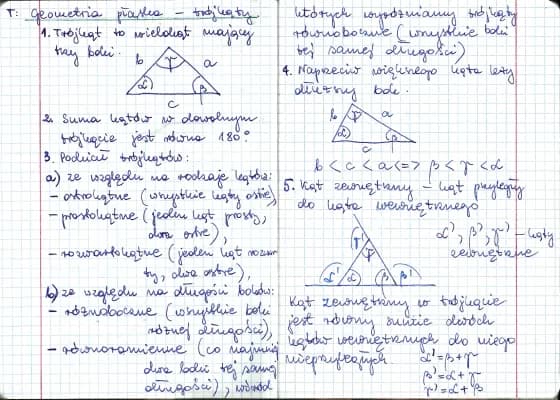 T: Geometria płaska – trójkąty
1. Trójkąt to wielokąt mający
trzy boki.
b γ a
α β
c
2. Suma kątów w dowolnym
trójkącie jest równa 180°
3. Podział trójkątów:
a) ze względu na rodzaje kątów:
– ostrokątne (wszystkie kąty ostre),
– prostokątne (jeden kąt prosty,
dwa ostre),
– rozwartokątne (jeden kąt rozwar
ty, dwa ostre),
b) ze względu na długości boków:
– różnoboczne (wszystkie boki
różnej długości),
– równoramienne (co najmniej
dwa boki tej samej
długości), wśród
których wyróżniamy trójkąty
równoboczne (wszystkie boki
tej samej długości)
4. Naprzeciw większego kąta leży
dłuższy bok.
b γ a
α β
c
b < c < a <=> β < γ < α
5. Kąt zewnętrzny – kąt przyległy
do kąta wewnętrznego
α', β', γ' – kąty
zewnętrzne
γ' γ
α' α β β'
Kąt zewnętrzny w trójkącie
jest równy sumie dwóch
kątów wewnętrznych do niego
nieprzyległych.
α' = β + γ
β' = α + γ
γ' = α + β